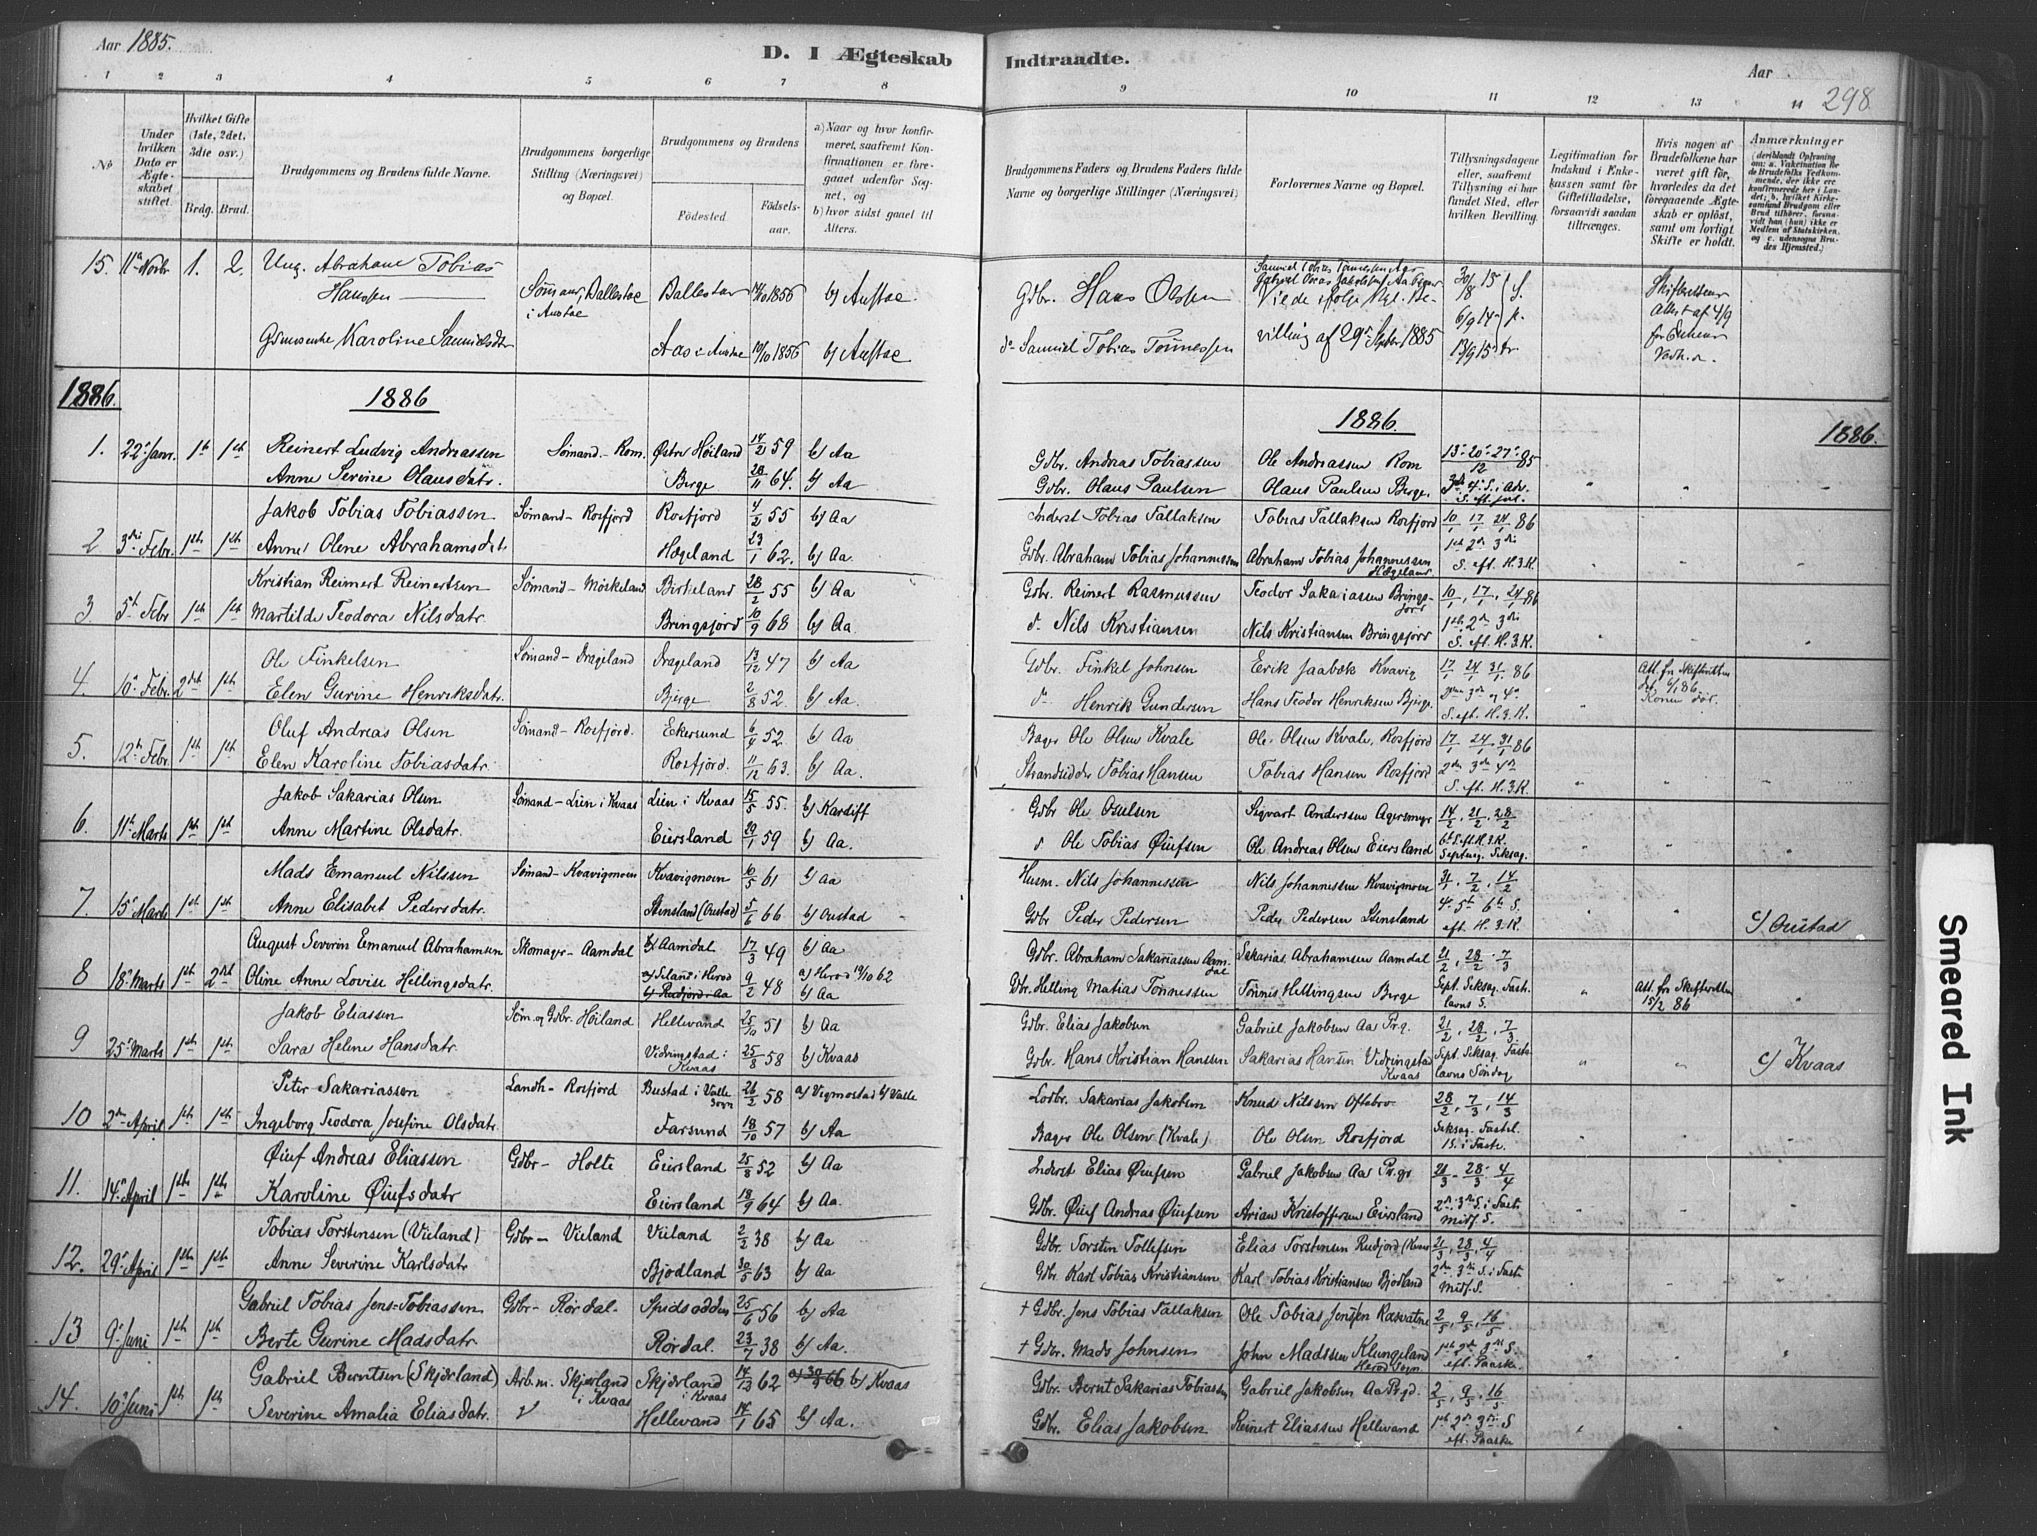 Aar 1885.
D. I Ægteskab Indtraadte.
Aar
298
1 2 3 4 5 6 7 8 9 10 11 12 13 14
No
Under hvilken Dato er Ægteskabet stiftet.
Hvilket Gifte (1ste, 2det, 3die osv.)
Brdg. Brud.
Brudgommens og Brudens fulde Navne.
Brudgommens borgerlige Stilling (Næringsvei) og Bopæl.
Brudgommens og Brudens
Fødested. Fødselsaar.
a) Naar og hvor konfirmeret, saafremt Konfirmationen er foregaaet udenfor Sognet, og
b) hvor sidst gaaet til Alters.
Brudgommens Faders og Brudens Faders fulde Navne og borgerlige Stillinger (Næringsvei)
Forlovernes Navne og Bopæl.
Tillysningsdagene eller, saafremt Tillysning ei har fundet Sted, efter hvilken Bevilling.
Legitimation for Indskud i Enkekassen samt for Giftetilladelse, forsaavidt saadan tiltrænges.
Hvis nogen af Brudefolkene har været gift før, hvorledes da det foregaaende Ægteskab er opløst, samt om lovligt Skifte er holdt.
Anmærkninger
15. 11te Novbr 1. 2. Ung. Abraham Tobias Hanssen Sømand, Ballestad i Austad Ballestad 14/10 1856 b) Austad Gdbr. Hans Olsen 30/8 15
Gdmsenke Karoline Samuelsdtr Aas i Austad 19/10 1856 b) Austad do Samuel Tobias Tønnessen Viede ifølge Kgl. Bevilling af 29de Septbr 1885 6/9 14 13/9 15
1886. 1886 1886. 1886.
1. 22de Janr. 1ste 1ste Reinert Ludvig Andreassen Sømand - Rom. Østre Høiland 14/2 59 b) Aa Gdbr. Andreas Tobiassen Ole Andreassen Rom 13-20-27/12 85
Anne Serine Olausdatr. Berge 28/11 64. b) Aa Gdbr. Olaus Paulsen Olaus Paulsen Berge. 3die 4. S. i Adv. S. eft. Jul.
2 3die Febr. 1ste 1ste Jakob Tobias Tobiassen Sømand - Rosfjord Rosfjord 4/2 55 b) Aa Inderst Tobias Tallaksen Tobias Tallaksen Rosfjord 10/1 17/1 24/1 86
Anne Olene Abrahamsdatr Hægeland 23/1 62. b) Aa. Gdbr. Abraham Tobias Johannessen Abraham Tobias Johannessen Hægeland 1ste 2den 3die S. eft. H. 3. K.
3 5te Febr 1ste 1ste Kristian Reinert Reinertsen Sømand - Møskeland Birkeland 28/2 55 b) Aa Gdbr. Reinert Rasmussen Teodor Sakariassen Bringsfjord 10/1, 17/1, 24/1 86
Martilde Teodora Nilsdatr Bringsjord 10/9 68 b) Aa. do Nils Kristiansen Nils Kristiansen Bringsjord 1ste 2den 3die S. eft. H. 3. K.
4. 10de Febr. 2det 1ste Ole Finkelsen Sømand - Drageland Drageland 13/12 47 b) Aa Gdbr. Finkel Johnsen Erik Jaabæk Kvavig 17/1 24/1 31/1 86 Att. fra Skifteretten det 6/1 86 Konen død.
Elen Gurine Henriksdatr. Bjerge 2/8 52. b) Aa. do Henrik Gundersen Hans Teodor Henriksen Bjerge 2den 3die og 4de S. eft. H. 3. K.
5. 12te Febr. 1ste 1ste Oluf Andreas Olsen Sømand - Rosfjord. Ekersund 6/4 52 b) Aa Bager Ole Olsen Kvale Ole Olsen Kvale, Rosfjord 17/1 24/1 31/1 86
Elen Karoline Tobiasdatr. Rosfjord. 11/12 63. b) Aa. Strandsidder Tobias Hansen Tobias Hansen Rosfjord 2den 3die 4de S. eft. H. 3. K.
6. 11te Marts 1ste 1ste Jakob Sakarias Olsen Sømand - Lien i Kvaas Lien i Kvaas 15/5 55. b) Kardiff Gdbr Ole Osulsen Sigvart Anderssen Agersmyr 14/2, 21/2, 28/2
Anne Martine Olsdatr. Eiersland 29/1 59 b) Aa. do Ole Tobias Øiufsen Ole Andreas Olsen Eiersland 6te S. eft. H. 3. K. Septuag. Seksag.
7. 15de Marts 1ste 1ste Mads Emanuel Nilssen Sømand - Kvavigmoen Kvavigmoen 10/5 61 b) Aa Husm. Nils Johannessen Nils Johannessen Kvavigmoen 31/1, 7/2, 14/2
Anne Elisabet Pedersdatr. Stensland (Oustad) 5/6 66 b) Oustad Gdbr Peder Pedersen Peder Pedersen Stensland 4de 5te 6te S. eft. H. 3. K. c) Oustad
8 18de Marts 1ste 2det August Severin Emanuel Abrahamsen Skomager - Aamdal Aamdal 17/3 49 b) Aa Gdbr. Abraham Sakariassen Aamdal Sakarias Abrahamsen Aamdal 21/2, 28/2, 7/3
Oline Anne Lovise Hellingsdatr. a) Seland i Herod b) Rudjord - Aa 9/2 48 a) Herod 19/10 62 b) Aa Gdbr. Helling Matias Tønnessen Tønnis Hellingsen Berge Sept. Seksag. Fastelavns S. Att. fra Skifteretten 15/2 86
9 25de Marts 1ste 1ste Jakob Eliassen Søm. og Gdbr. Høiland Hellevand 25/10 51 b) Aa Gdbr. Elias Jakobsen Gabriel Jakobsen Aa Pr.g. 21/2, 28/2, 7/3
Sara Helene Hansdatr. Vidringstad i Kvaas 25/8 58 b) Kvaas Gdbr. Hans Kristian Hanssen Sakarias Hansen Vidringstad Kvaas Sept. Seksag. Fastelavns Søndag c) Kvaas
10 2den April 1ste 1ste Peter Sakariassen Landh - Rosfjord Bustad i Valle Sogn 26/2 58 a) Vigmostad b) Valle Gdbr. Sakarias Jakobsen Knud Nilssen Oftebro 28/2, 7/3, 14/3
Ingeborg Teodora Josefine Olsdatr. Farsund 18/10 57 b) Aa Bager Ole Olsen (Kvale) Ole Olsen Rosfjord Seksag. Fastel. 1 S. i Faste.
11. 14de April 1ste 1ste Øiuf Andreas Eliassen Gdbr - Holte Eiersland 25/8 52 b) Aa Inderst Elias Øiufsen Gabriel Jakobsen Aa Pr.gr. 21/3 - 28/3 - 4/4
Karoline Øiufsdatr Eiersland 18/9 64 b) Aa Gdbr. Øiuf Andreas Øiufsen Arian Kristoffersen Eiersland 2den 3die S. i Faste Midf. S.
12. 29de April 1ste 1ste Tobias Torstensen (Vieland) Gdbr - Vieland Vieland 2/2 38 b) Aa Gdbr. Torsten Tollefsen Elias Torstensen Rudjord (Kvaas 21/3, 28/3, 4/4
Anne Severine Karlsdatr Bjodland 30/5 63 b) Aa Gdbr. Karl Tobias Kristiansen Karl Tobias Kristiansen Bjodland 2den 3die S. i Faste Midf. S.
13 9de Juni 1ste 1ste Gabriel Tobias Jens-Tobiassen Gdbr - Rørdal. Spidsodden 25/6 56 b) Aa † Gdbr. Jens Tobias Tallaksen Ole Tobias Jensen Røsvatne 2/5, 9/5, 16/5
Berte Gurine Madsdatr. Rørdal. 23/7 38 b) Aa. † Gdbr. Mads Johnsen John Madssen Klungeland Herod Sogn 1ste 2den 3die S. eft. Paaske.
14. 10de Juni 1ste 1ste Gabriel Berntsen (Skjerland) Arb.m. Skjerland i Kvaas Skjerland i Kvaas 62 b) Kvaas Gdbr. Bernt Sakarias Tobiassen Gabriel Jakobsen Aa Pr.gd. 2/5, 9/5, 16/5
Severine Amalia Eliasdatr. Hellevand 14/1 65 b) Aa. Gdbr. Elias Jakobsen Reinert Eliassen Hellevand 1ste 2den 3die S. eft. Paaske
Smeared Ink